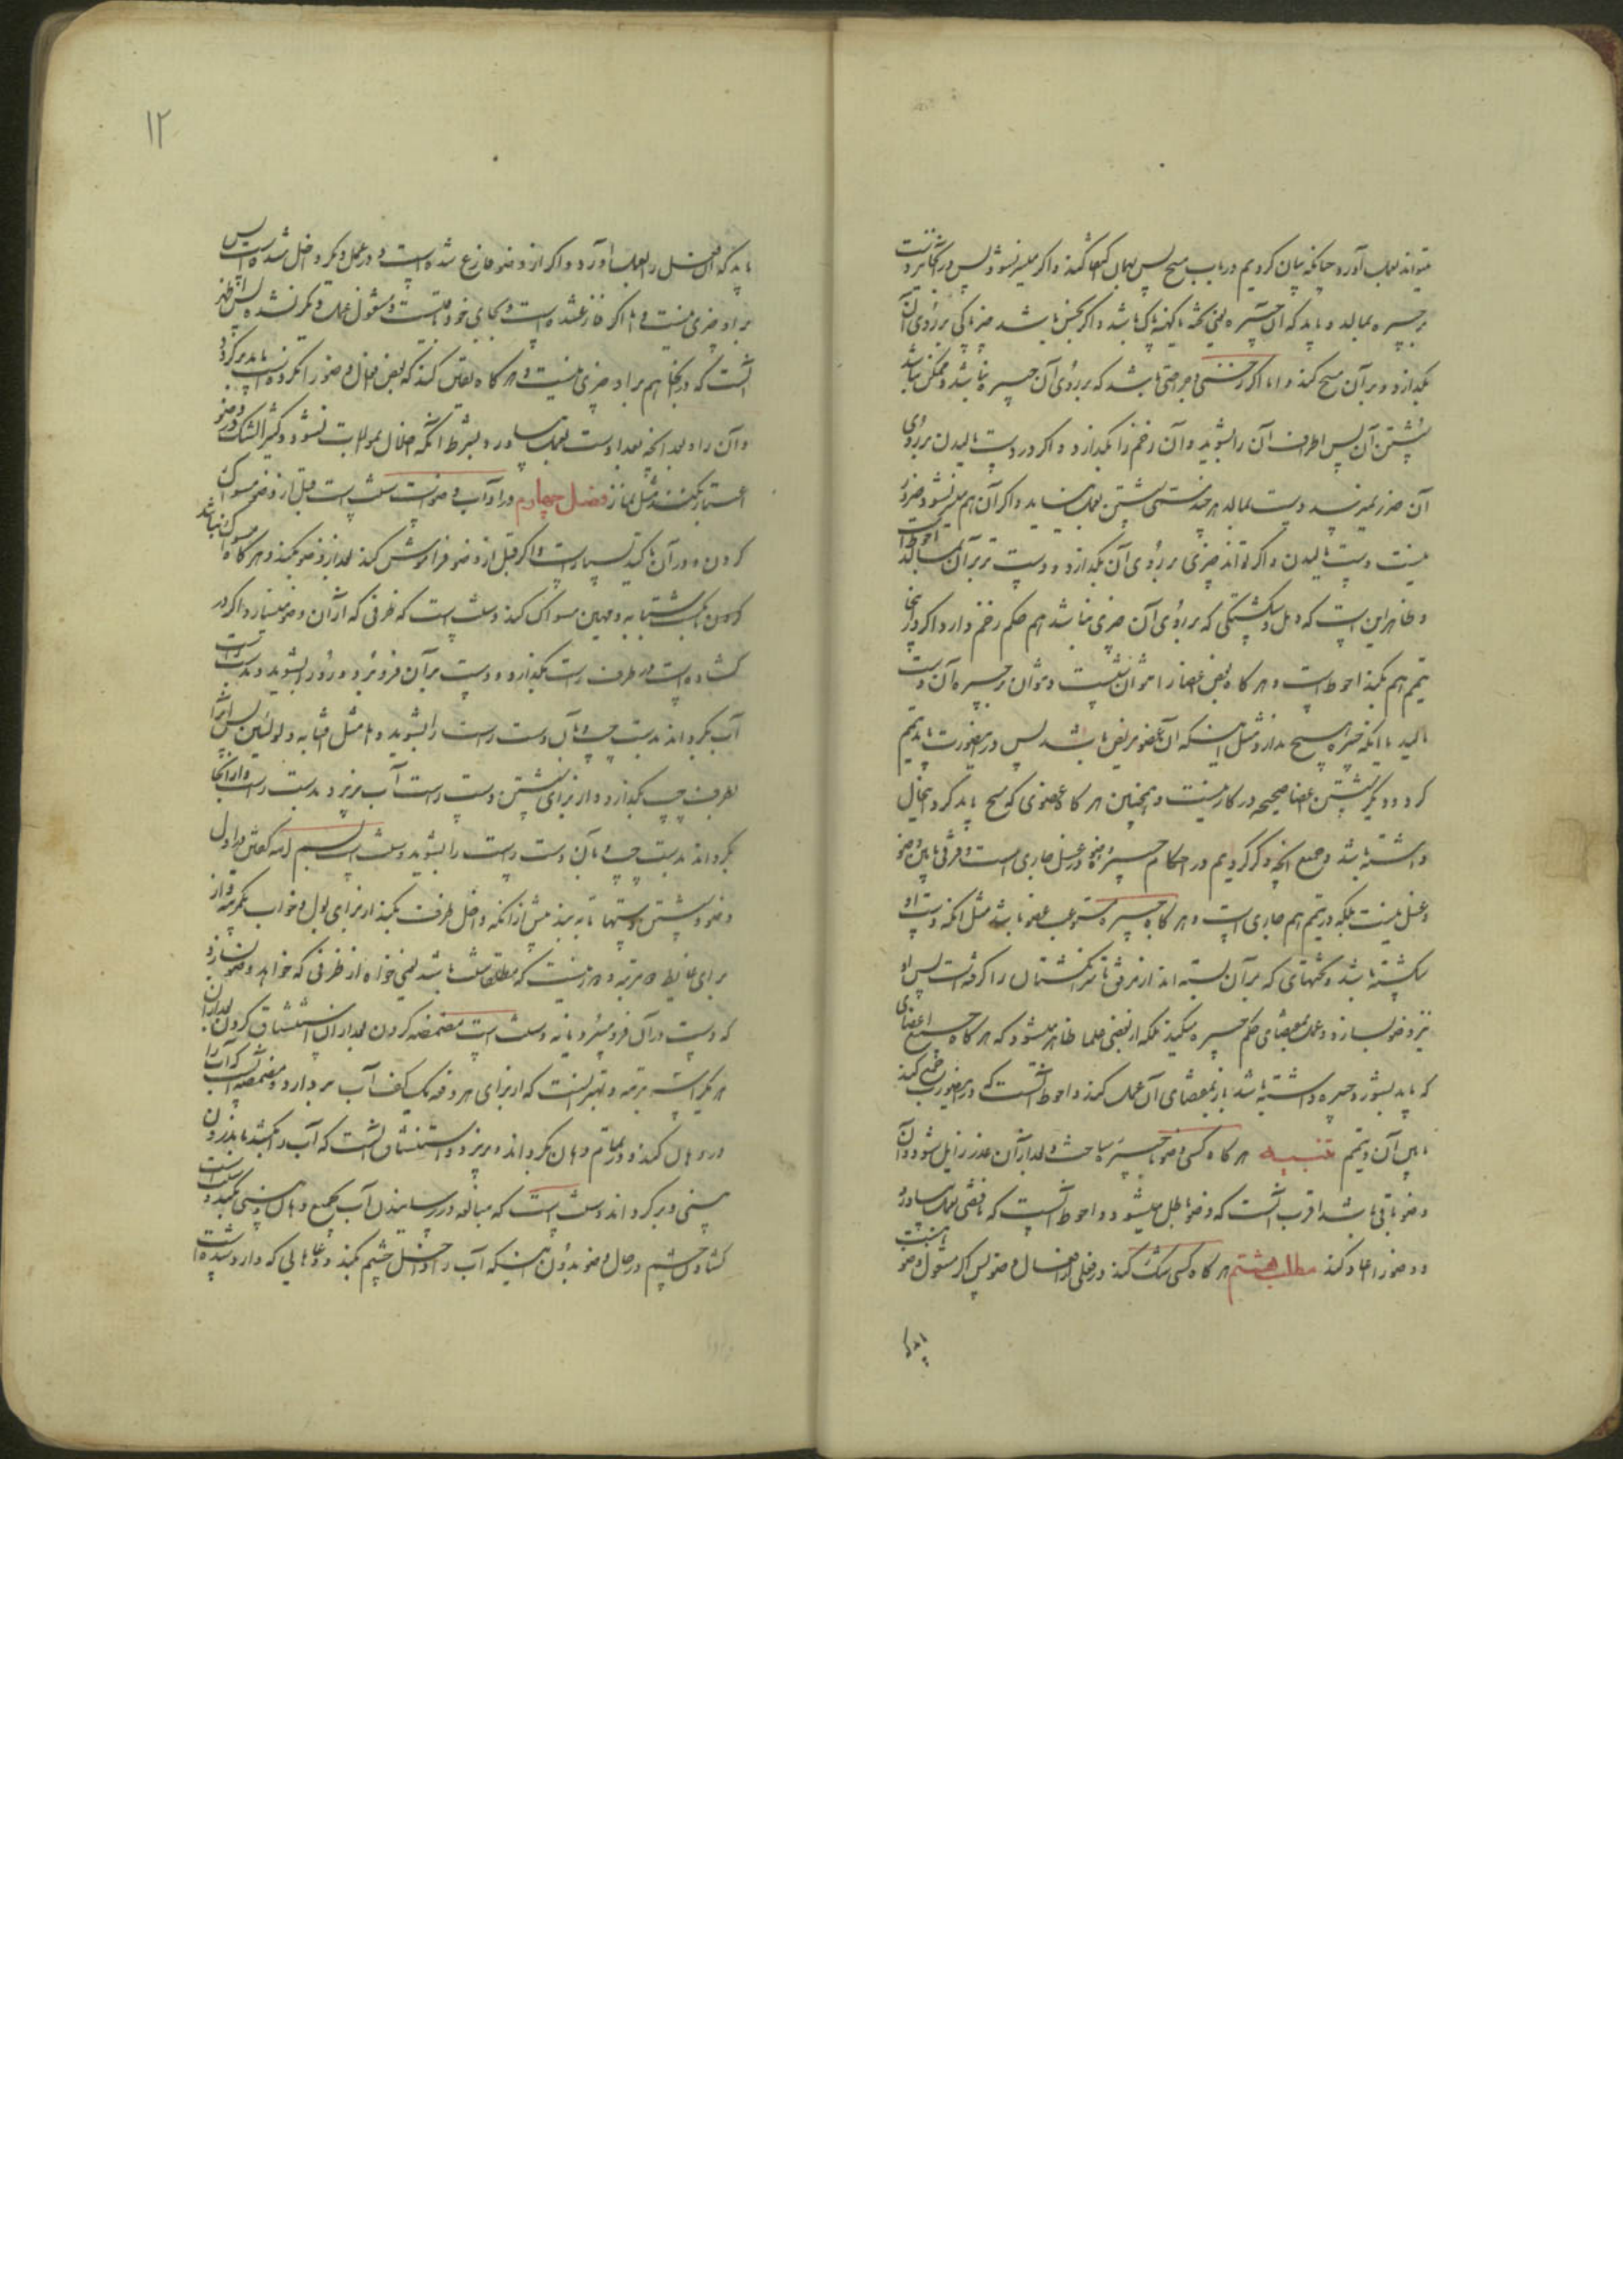 میتواند بعمل آورد چنانکه بیان کردیم در باب مسح پس بهمان اکتفا کند و اگر میسر نشود پس دست تر
بر جبیره بمالد و باید که آن جبیره یعنی تخته یا کهنه پاک باشد و اگر نجس باشد چیز پاکی بر روی آن
بگذارد و بر آن مسح کند و اما اگر زخمی و جراحتی باشد که بر روی آن جبیره نباشد و ممکن نباشد
شستن آن پس اطراف آن را بشوید و آن زخم را بگذارد و اگر در دست مالیدن بر روی
آن ضرر نمیرسد دست بمالد هر چند مسمی شستن بعمل نیاید و اگر آن هم میسر نشود ضرور
نیست دست مالیدن و اگر تواند چیزی بر روی آن بگذارد و دست تر بر آن بمالد احوط است
و ظاهر این است که دمل و شکستگی که بر روی آن چیزی نباشد هم حکم زخم دارد و اگر در اینجا
تیمم هم بکند احوط است و هر گاه بعض اعضا را نتوان شست و نتوان بر جبیره آن دست
مالید یا اینکه جبیره مسح ندارد مثل اینکه آن عضو مریض باشد پس در اینصورت باید تیمم
کرد و دیگر شستن اعضا صحیحه در کار نیست و همچنین هر گاه عضوی که مسح باید کرد اینحال
داشته باشد و جمیع آنچه ذکر کردیم در احکام جبیره وضو در غسل جاری است و فرقی مابین وضو
و غسل نیست بلکه در تیمم هم جاری است و هر گاه جبیره مستوعب عضو باشد مثل آنکه دست او
شکسته باشد و تختهای که بر آن بسته اند از مرفق تا سر انگشتان را گرفته است پس او
نیز وضو بسازد و عمل بمقتضای حکم جبیره میکند بلکه از بعضی علما ظاهر میشود که هر گاه جمیع اعضای
که باید بشورد جبیره داشته باشد باز بمقتضای آن عمل کند و احوط آنست که در اینصورت جمع کند
مابین آن و تیمم تنبیه هر گاه کسی وضو با جبیره ساخت و بعد از آن عذر زایل شود و آن
وضو باقی باشد اقرب آنست که وضو باطل میشود و احوط آنست که ناقضی بعمل بیاورد
و وضو را اعاده کند مطلب هشتم هر گاه کسی شک کند در فعلی از افعال وضو پس اگر مشغول وضو
باید که
۱۲
باید که آن فعل را بعمل آورد و اگر از وضو فارغ شده است و در عمل دیگر داخل شده است پس
بر او چیزی نیست و اما اگر فارغ شده است و بجای خود هست و مشغول عمل دیگر نشده پس اظهر
آنست که در اینجا هم بر او چیزی نیست و هر گاه یقین کند که بعض افعال وضو را نکرده است باید برگردد
و آن را و بعد آنچه بعد اوست بعمل بیاورد بشرط آنکه اخلال بموالات نشود و کثیر الشک در وضو
اعتبار نکند مثل نماز فصل چهارم در آداب وضو است سنت است قبل از وضو مسواک
کردن و در آن تأکید بسیار است و اگر قبل از وضو فراموش کند بعد از وضو بکند و هر گاه مسواک نباشد
کردن بانگشت سبابه و مهین مسواک کند و سنت است که ظرفی که از آن وضو میسازد اگر در
گشاده است در طرف راست بگذارد و دست بر آن فرو برد و رو را بشوید و بدست راست
آب بگرداند بدست چپ و بآن دست راست را بشوید و اما مثل آفتابه و لولئین پس آن را
بطرف چپ بگذارد و از برای شستن دست راست آب بریزد بدست راست و از آنجا
بگرداند بدست چپ و بآن دست راست را بشوید و سنت است بسم الله گفتن در اول
وضو و شستن دستها تا به بند پیش از آنکه داخل ظرف بکند از برای بول و خواب یکمرتبه و از
برای غایط دو مرتبه و دور نیست که مطلقا سنت باشد یعنی خواه از ظرفی که خواهد وضو بسازد
که دست در آن فرو میبرد یا نه و سنت است مضمضه کردن بعد از آن استنشاق کردن بعد از آن
هر یک را سه مرتبه و بهتر آنست که از برای هر دفعه یک کف آب بردارد و مضمضه آنست که آب را
در دهان کند و در تمام دهان بگرداند و بریزد و استنشاق آنست که آب را بکشد باندرون
بینی و برگرداند و سنت است که مبالغه در رسانیدن آب بجمیع دهان و بینی بکند و سنت است
گشادن چشم در حال وضو بدون اینکه آب را داخل چشم بکند و دعاهایی که وارد شده است